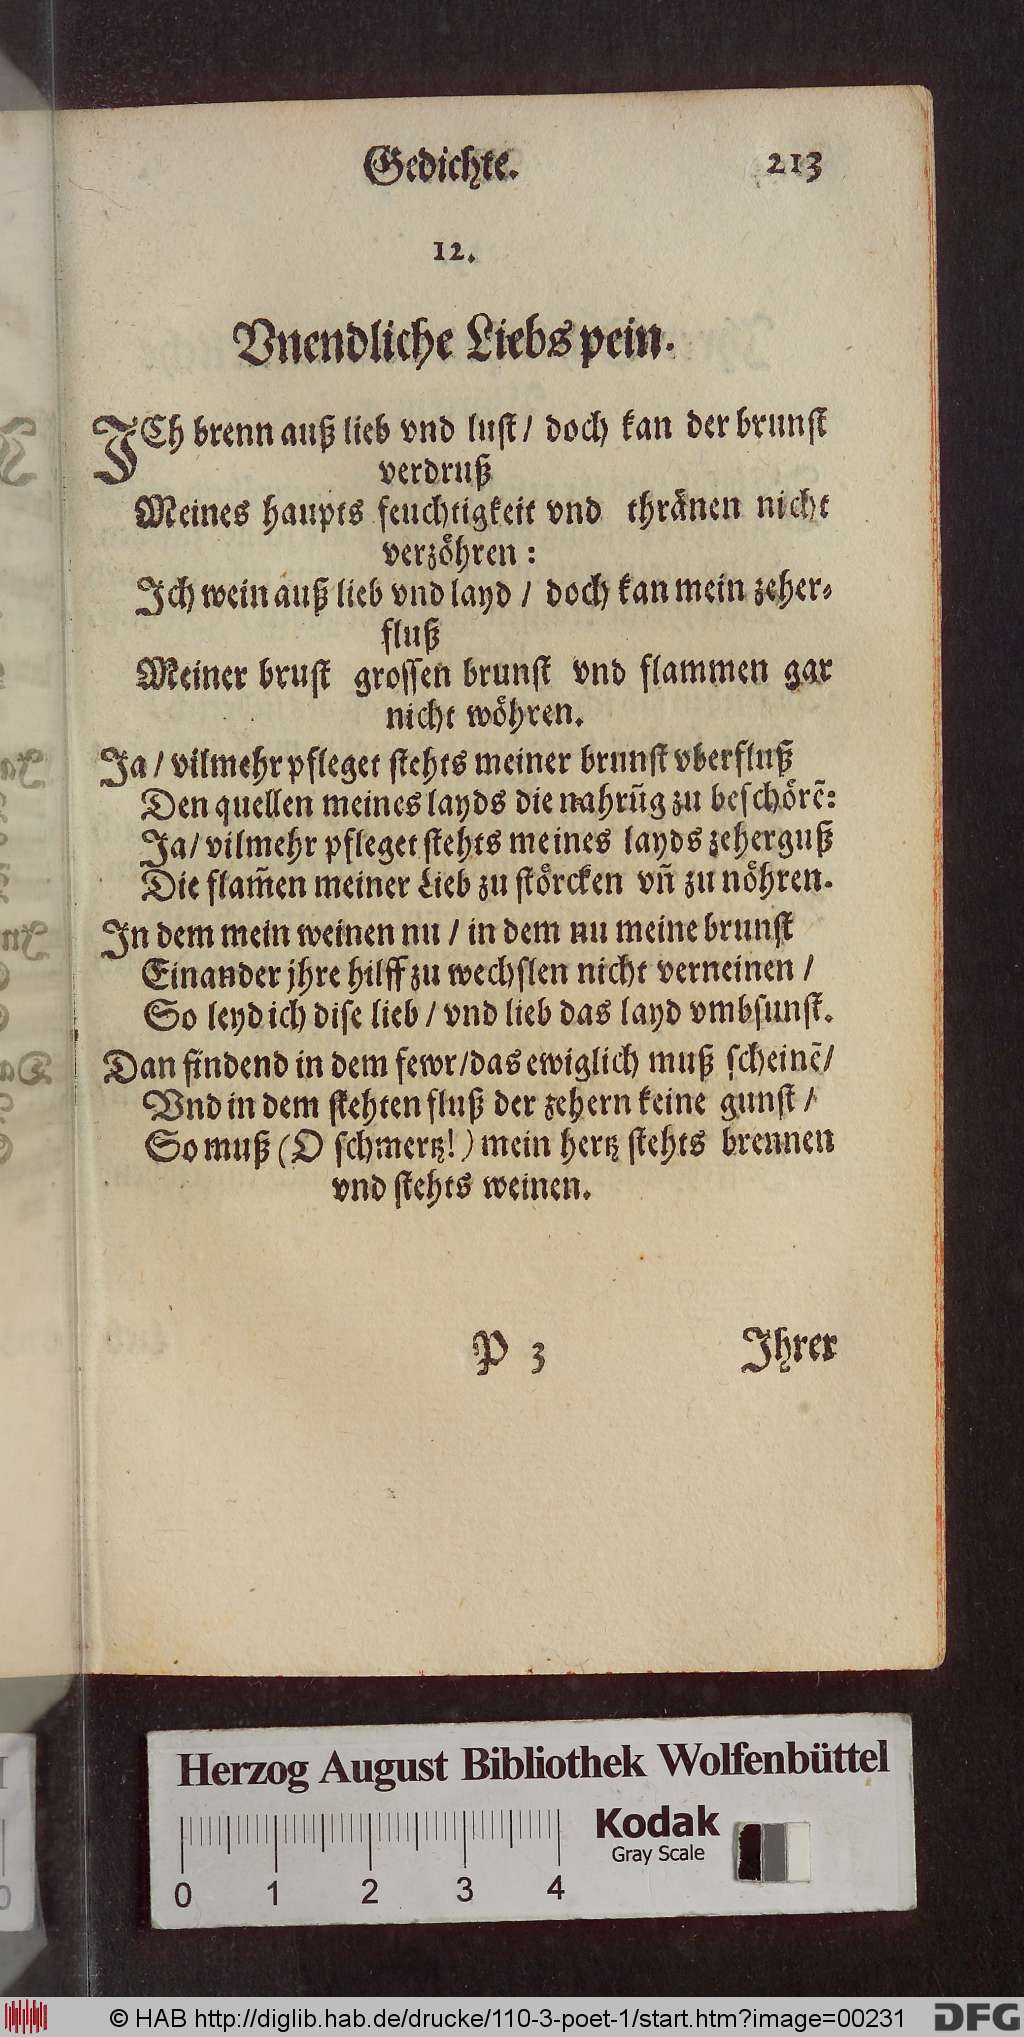 Gedichte. 213
12.
Vnendliche Liebspein.
ICh brenn auß lieb vnd lust / doch kan der brunst
verdruß
Meines haupts feuchtigkeit vnd thränen nicht
verzöhren :
Ich wein auß lieb vnd layd / doch kan mein zeher-
fluß
Meiner brust grossen brunst vnd flammen gar
nicht wöhren.
Ja / vilmehr pfleget stehts meiner brunst vberfluß
Den quellen meines layds die nahrũg zu beschörẽ:
Ja / vilmehr pfleget stehts meines layds zeherguß
Die flam̃en meiner Lieb zu störcken vñ zu nöhren.
In dem mein weinen nu / in dem nu meine brunst
Einander jhre hilff zu wechslen nicht verneinen /
So leyd ich dise lieb / vnd lieb das layd vmbsunst.
Dan findend in dem fewr / das ewiglich muß scheinẽ /
Vnd in dem stehten fluß der zehern keine gunst /
So muß (O schmertz! ) mein hertz stehts brennen
vnd stehts weinen.
P 3 Ihrer
Herzog August Bibliothek Wolfenbüttel
Kodak
Gray Scale
0 1 2 3 4
© HAB http://diglib.hab.de/drucke/110-3-poet-1/start.htm?image=00231
DFG